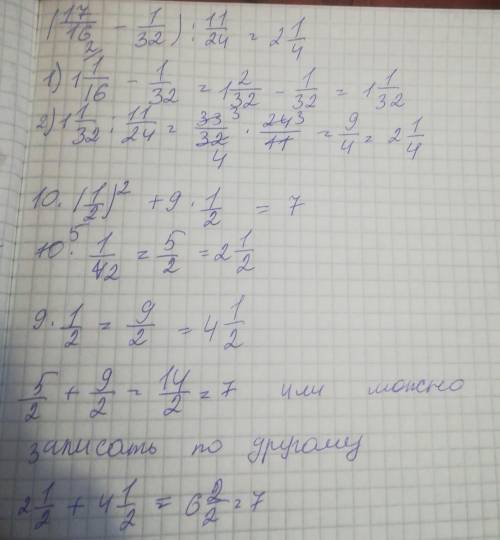 (17/16 - 1/32) : 11/24 = 2 1/4
1) 1 1/16 - 1/32 = 1 2/32 - 1/32 = 1 1/32
2) 1 1/32 : 11/24 = 33/32 · 24/11 = 9/4 = 2 1/4
10 · (1/2)² + 9 · 1/2 = 7
10 · 1/4 = 5/2 = 2 1/2
9 · 1/2 = 9/2 = 4 1/2
5/2 + 9/2 = 14/2 = 7 или можно
записать по другому
2 1/2 + 4 1/2 = 6 2/2 = 7